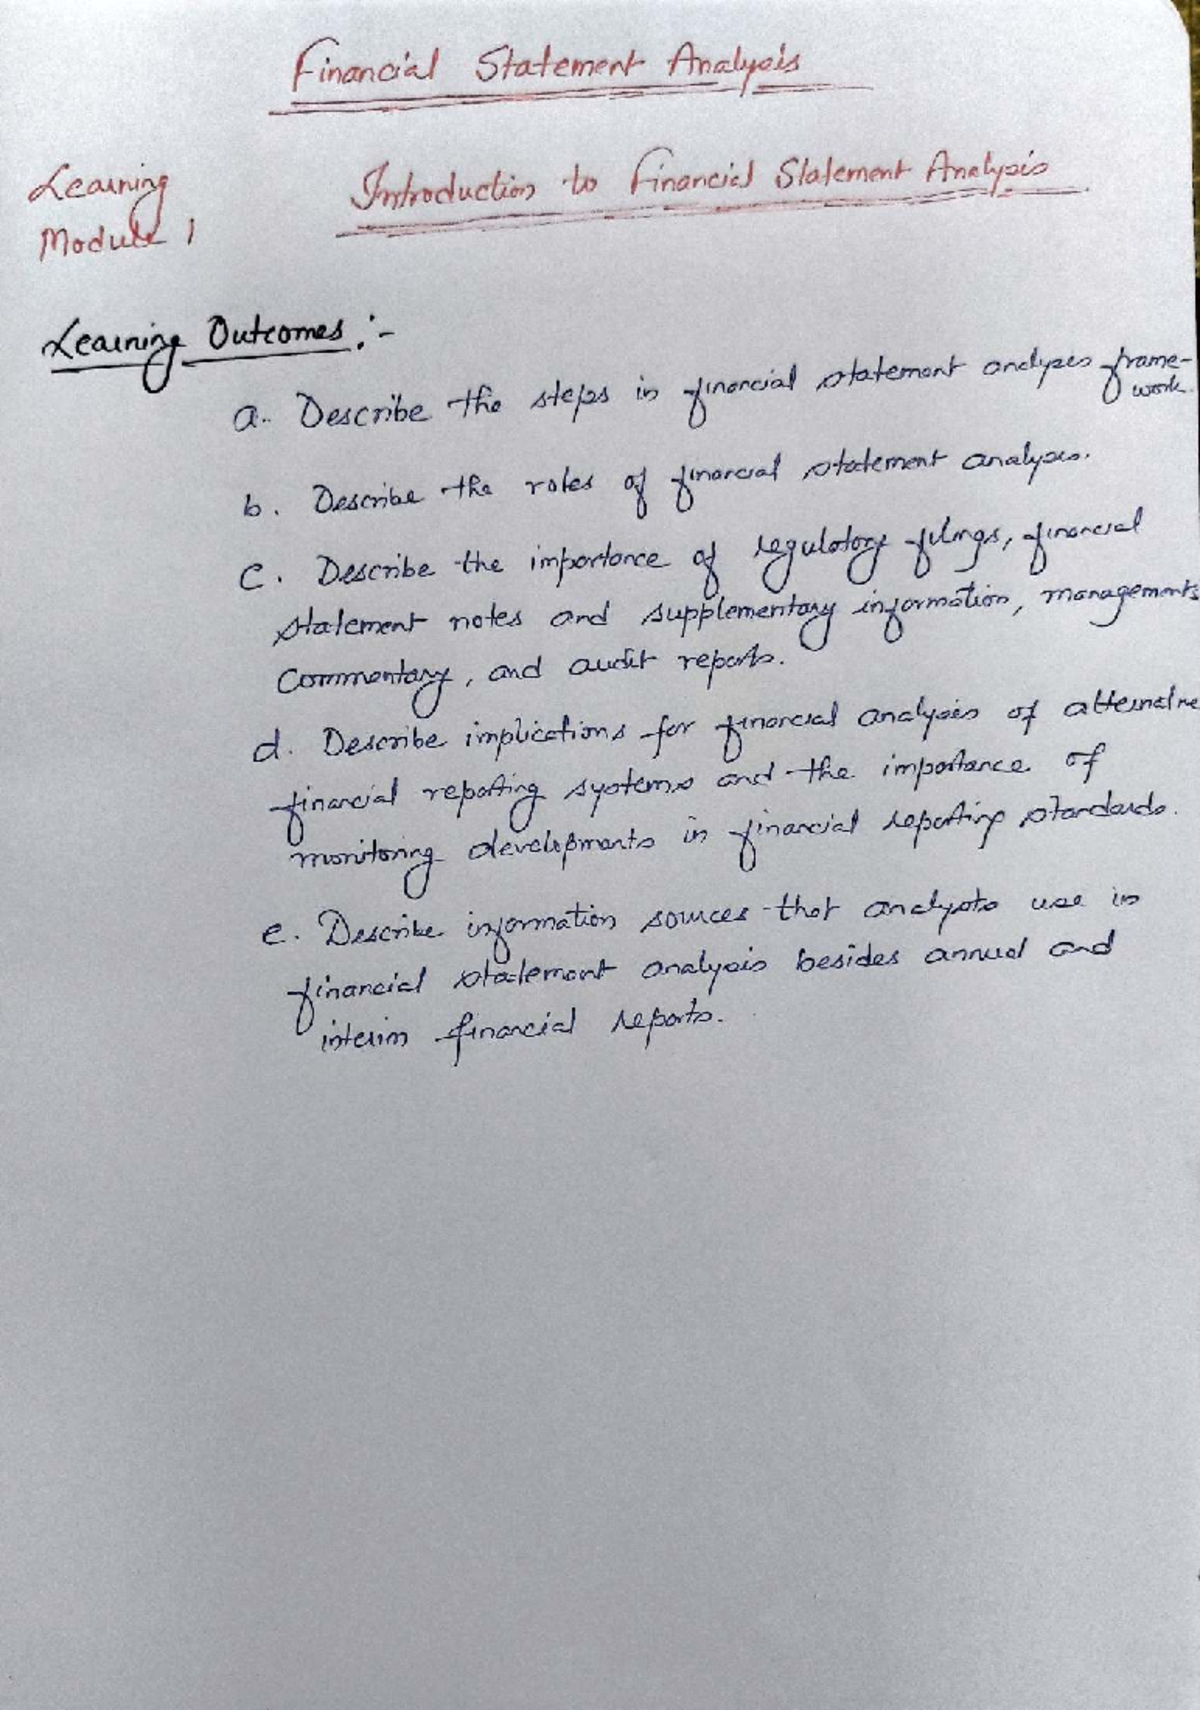 Financial Statement Analysis
Learning
Module 1
Introduction to Financial Statement Analysis
Learning Outcomes :-
a. Describe the steps in financial statement analyses frame-
work.
b. Describe the roles of financial statement analyses.
c. Describe the importance of regulatory filings, financial
statement notes and supplementary information, managements
commentary, and audit reports.
d. Describe implications for financial analysis of alternative
financial reporting systems and the importance of
monitoring developments in financial reporting standards.
e. Describe information sources that analysts use in
financial statement analysis besides annual and
interim financial reports.